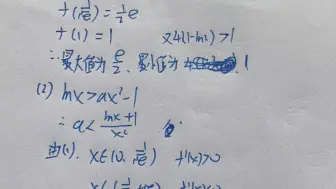 f(1/√e) = 1/2 e
f(1) = 1 又4(1-ln2)>1
∴最大值为 e/2, 最小值为 1
(2) lnx>ax²-1
∴a< (lnx+1)/x²
由(1). x∈(0, 1/√e) f'(x)>0